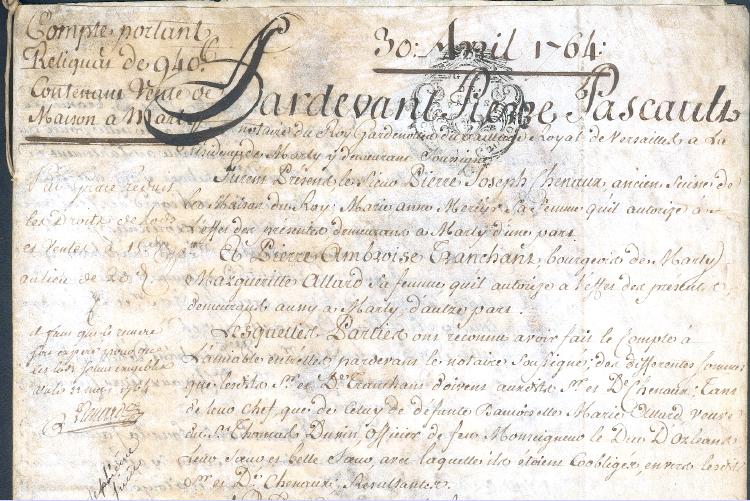 Compte portant
Reliquat de 940.
Contenant Vente de
Maison a Marly
30: Avril 1764:
Pardevant Pierre Pascault
notaire du Roy Gardenotte du Bailliage Royal de Versailles, a La
de Marly y demeurant Soussigné
Furent Présens le Sieur Pierre Joseph Chenaux, ancien Suisse de
la Maison du Roy, Marie anne sa femme qu'il autorise à
l'effet des présentes demeurans a Marly d'une part.
Et Pierre Ambroise Tranchant, bourgeois de Marly
Marguerite Allard sa femme qu'il autorise à l'effet des presentes
demeurans aussy a Marly, d'autre part.
Lesquelles Parties ont reconnu avoir fait le Compte à
L'amiable entrelles pardevant le notaire Soussigné, des differentes sommes
que lesdits Sr. et De. Tranchant doivent auxdits Sr. et De. Chenaux, Tant
de leur Chef, que de Celuy de défunte Damoiselle Marie Allard veuve
du Sr. Thomas Officier de feu Monseigneur le Duc D'orleans
leur Sœur et belle Sœur, avec laquelle ils étoient Coobligés, envers lesdits
Sr. et De. Chenaux, Resultantes
J'ai reduit
les Droits de Lods
et Ventes a
au lieu de